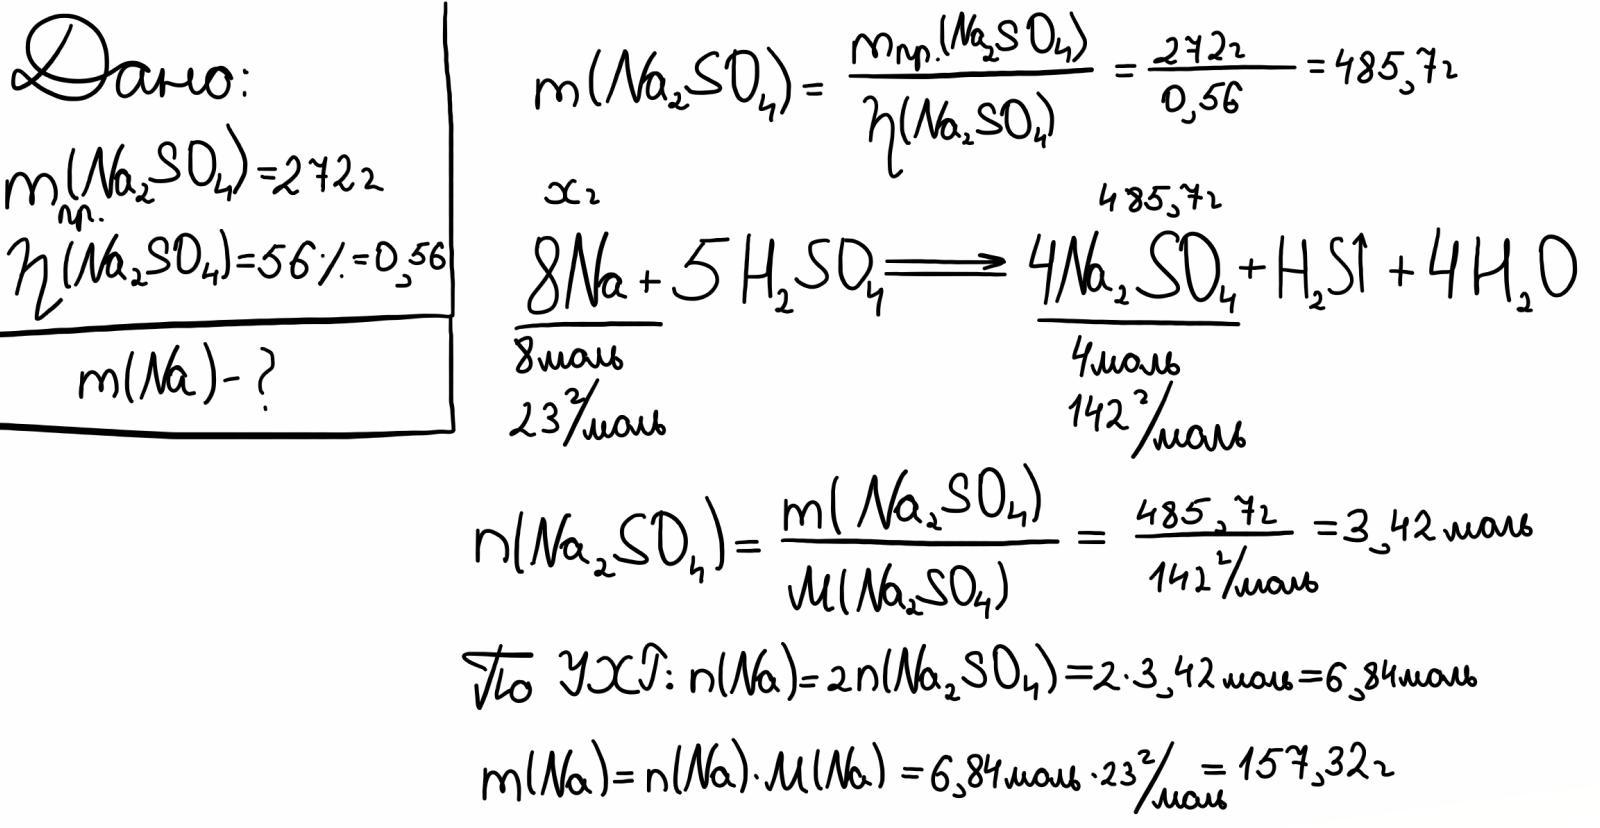 Дано:
m пр.(Na₂SO₄)=272г
η(Na₂SO₄)=56%=0,56
m(Na)-?
m(Na₂SO₄)= m пр.(Na₂SO₄)/η(Na₂SO₄) = 272г/0,56 = 485,7г
xг 485,7г
8Na + 5H₂SO₄ ⟹ 4Na₂SO₄ + H₂S↑ + 4H₂O
8моль 4моль
23г/моль 142г/моль
n(Na₂SO₄)= m(Na₂SO₄)/M(Na₂SO₄) = 485,7г/142г/моль =3,42моль
По УХР: n(Na)=2n(Na₂SO₄)=2·3,42моль=6,84моль
m(Na)=n(Na)·M(Na)=6,84моль·23г/моль=157,32г